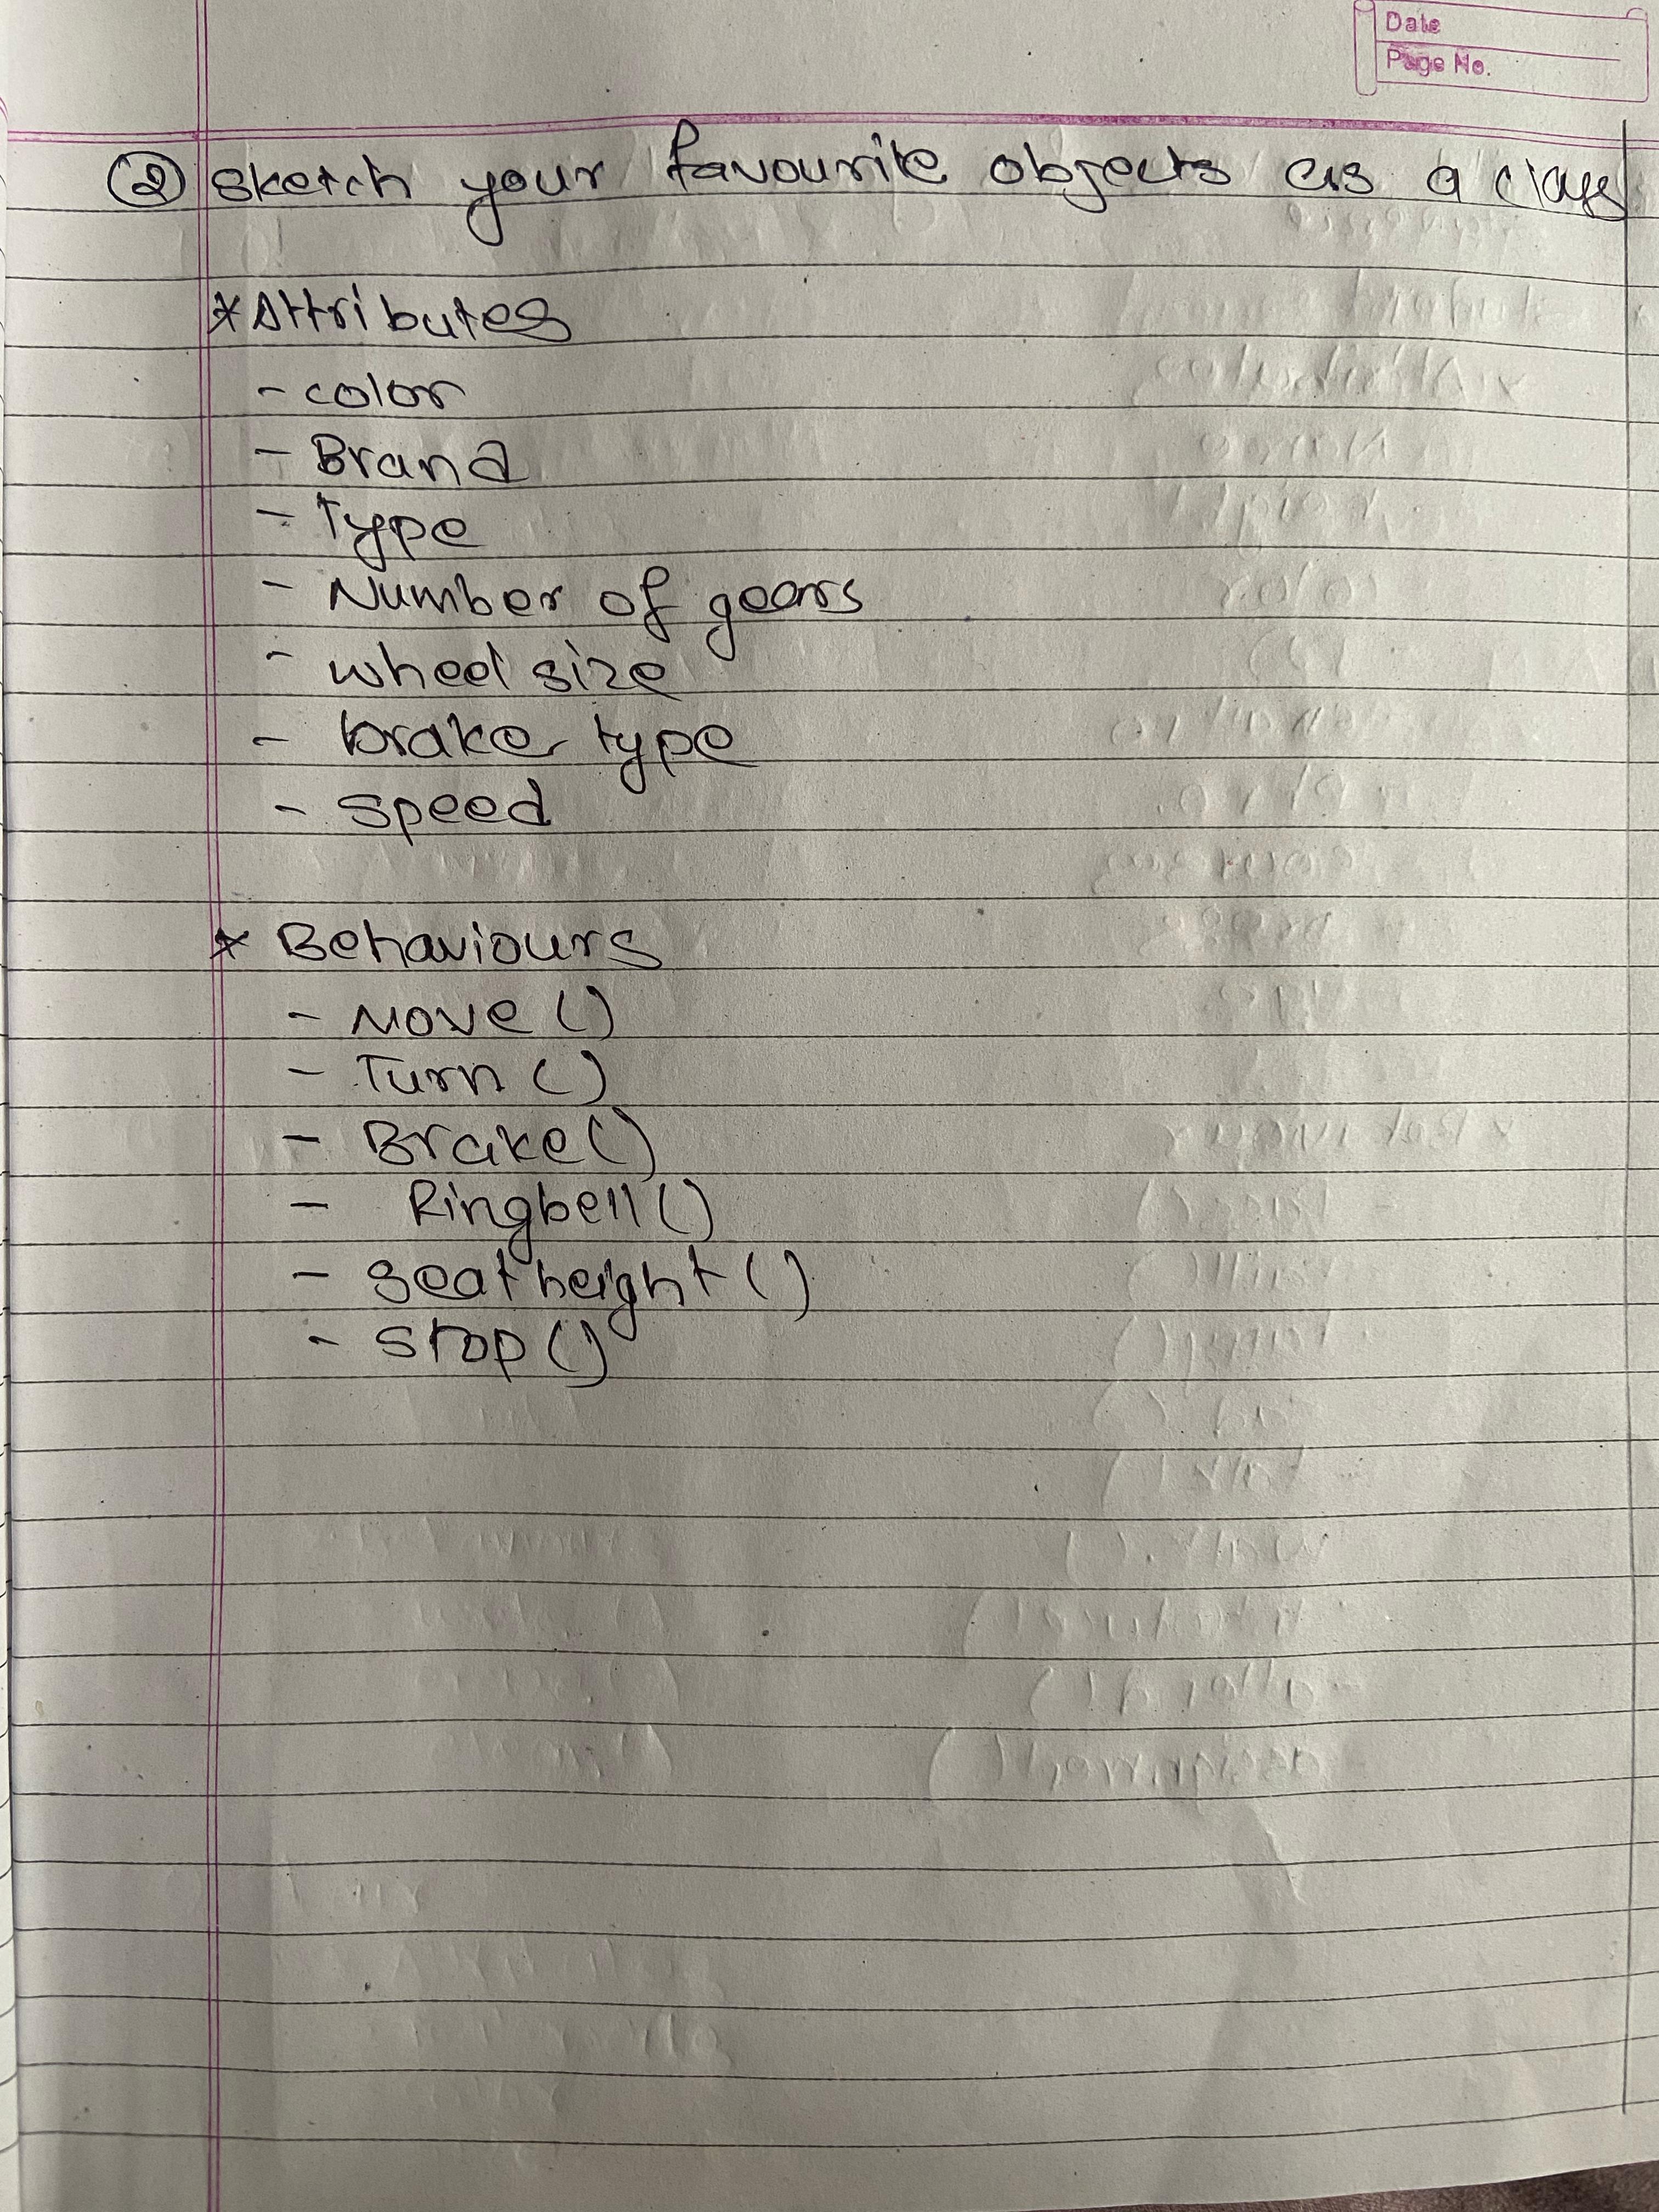 Date
Page No.
② Sketch your favourite objects as a class
* Attributes
- color
- Brand
- Type
- Number of gears
- wheel size
- brake type
- speed
* Behaviours
- Move ()
- Turn ()
- Brake()
- Ringbell ()
- seat height ()
- stop ()